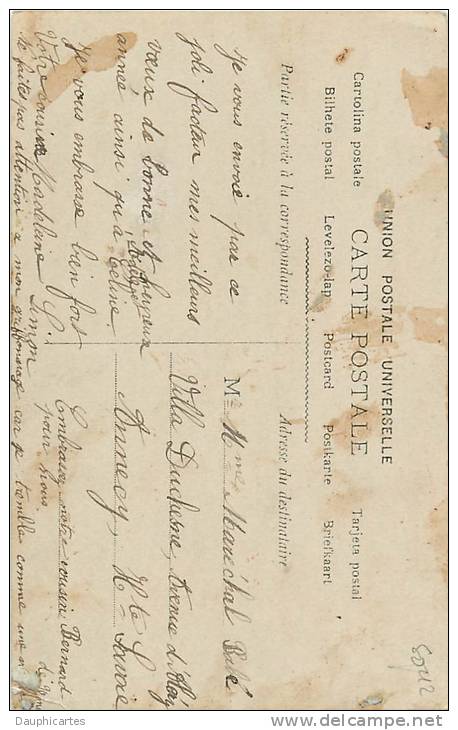 UNION POSTALE UNIVERSELLE
CARTE POSTALE
Cartolina postale Tarjeta postal
Bilhete postal Levelezö-lap Postcard Postkarte Briefkaart
Partie réservée à la correspondance
Adresse du destinataire
Je vous envoie par ce
joli facteur mes meilleurs
vœux de bonne et heureuse
année ainsi qu'à
Céline.
Je vous embrasse bien fort
Votre cousine Madeleine Simon
Ne faites pas attention à mon griffonnage car je tremble comme une
M Mme Maréchal
Villa Duchesne, Avenue d
Annecy Hte Savoie
Embrassez notre cousin Bernard
pour nous.
Dauphicartes
delcampe.net